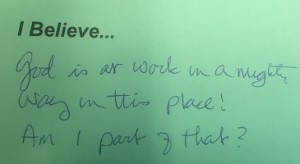 I Believe...
God is at work in a mighty
way in this place!
Am I part of that?